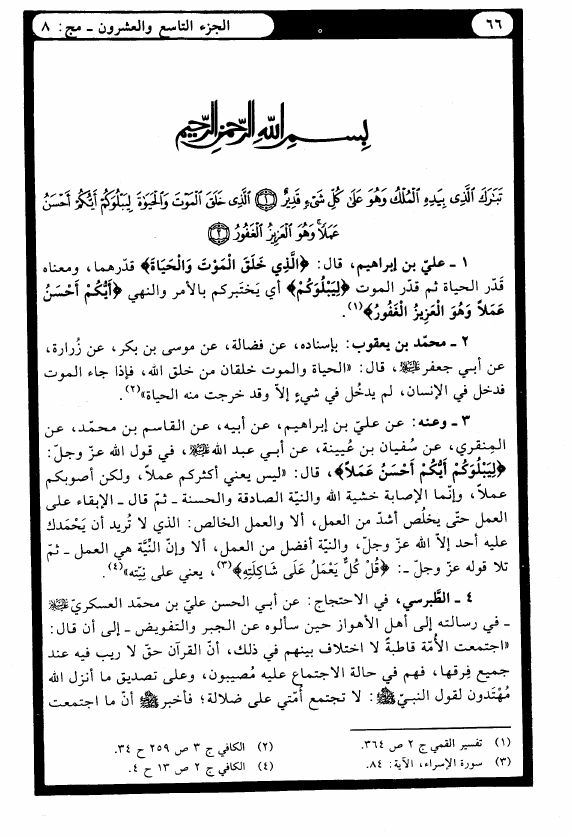 ٦٦
الجزء التاسع والعشرون ـ مج: ٨
بسم الله الرحمن الرحيم
تَبَارَكَ الَّذِي بِيَدِهِ الْمُلْكُ وَهُوَ عَلَى كُلِّ شَيْءٍ قَدِيرٌ ١ الَّذِي خَلَقَ الْمَوْتَ وَالْحَيَاةَ لِيَبْلُوَكُمْ أَيُّكُمْ أَحْسَنُ
عَمَلًا وَهُوَ الْعَزِيزُ الْغَفُورُ ٢
١ ـ عليّ بن إبراهيم، قال: ﴿الَّذِي خَلَقَ الْمَوْتَ وَالْحَيَاةَ﴾ قدرهما، ومعناه
قَدّر الحياة ثم قدّر الموت ﴿لِيَبْلُوَكُمْ﴾ أي يَختَبركم بالأمر والنهي ﴿أَيُّكُمْ أَحْسَنُ
عَمَلاً وَهُوَ الْعَزِيزُ الْغَفُورُ﴾(١).
٢ ـ محمّد بن يعقوب: بإسناده، عن فضالة، عن موسى بن بكر، عن زُرارة،
عن أبي جعفر عليه السلام، قال: «الحياة والموت خلقان من خلق الله، فإذا جاء الموت
فدخل في الإنسان، لم يدخُل في شيءٍ إلاّ وقد خرجت منه الحياة»(٢).
٣ ـ وعنه: عن عليّ بن إبراهيم، عن أبيه، عن القاسم بن محمّد، عن
المِنقري، عن سُفيان بن عُيينة، عن أبي عبد الله عليه السلام، في قول الله عزّ وجلّ:
﴿لِيَبْلُوَكُمْ أَيُّكُمْ أَحْسَنُ عَمَلاً﴾، قال: «ليس يعني أكثركم عملاً، ولكن أصوبكم
عملاً، وإنّما الإصابة خشية الله والنية الصادقة والحسنة ـ ثمّ قال ـ الإبقاء على
العمل حتّى يخلُص أشدّ من العمل، ألا والعمل الخالص: الذي لا تُريد أن يَحْمَدك
عليه أحد إلاّ الله عزّ وجلّ، والنية أفضل من العمل، ألا وإنّ النِّيَّة هي العمل ـ ثمّ
تلا قوله عزّ وجلّ ـ: ﴿قُلْ كُلٌّ يَعْمَلُ عَلَى شَاكِلَتِهِ﴾(٣)، يعني على نِيّته»(٤).
٤ ـ الطَّبرسي، في الاحتجاج: عن أبي الحسن عليّ بن محمّد العسكريّ عليه السلام
ـ في رسالته إلى أهل الأهواز حين سألوه عن الجبر والتفويض ـ إلى أن قال:
«اجتمعت الأُمّة قاطبةً لا اختلاف بينهم في ذلك، أنّ القرآن حقّ لا ريب فيه عند
جميع فِرقها، فهم في حالة الاجتماع عليه مُصيبون، وعلى تصديق ما أنزل الله
مُهْتَدون لقول النبيّ ﷺ: لا تجتمع أمّتي على ضلالة؛ فأخبر ﷺ أنّ ما اجتمعت
(١) تفسير القمي ج ٢ ص ٣٦٤.
(٢) الكافي ج ٣ ص ٢٥٩ ح ٣٤.
(٣) سورة الإسراء، الآية: ٨٤.
(٤) الكافي ج ٢ ص ١٣ ح ٤.